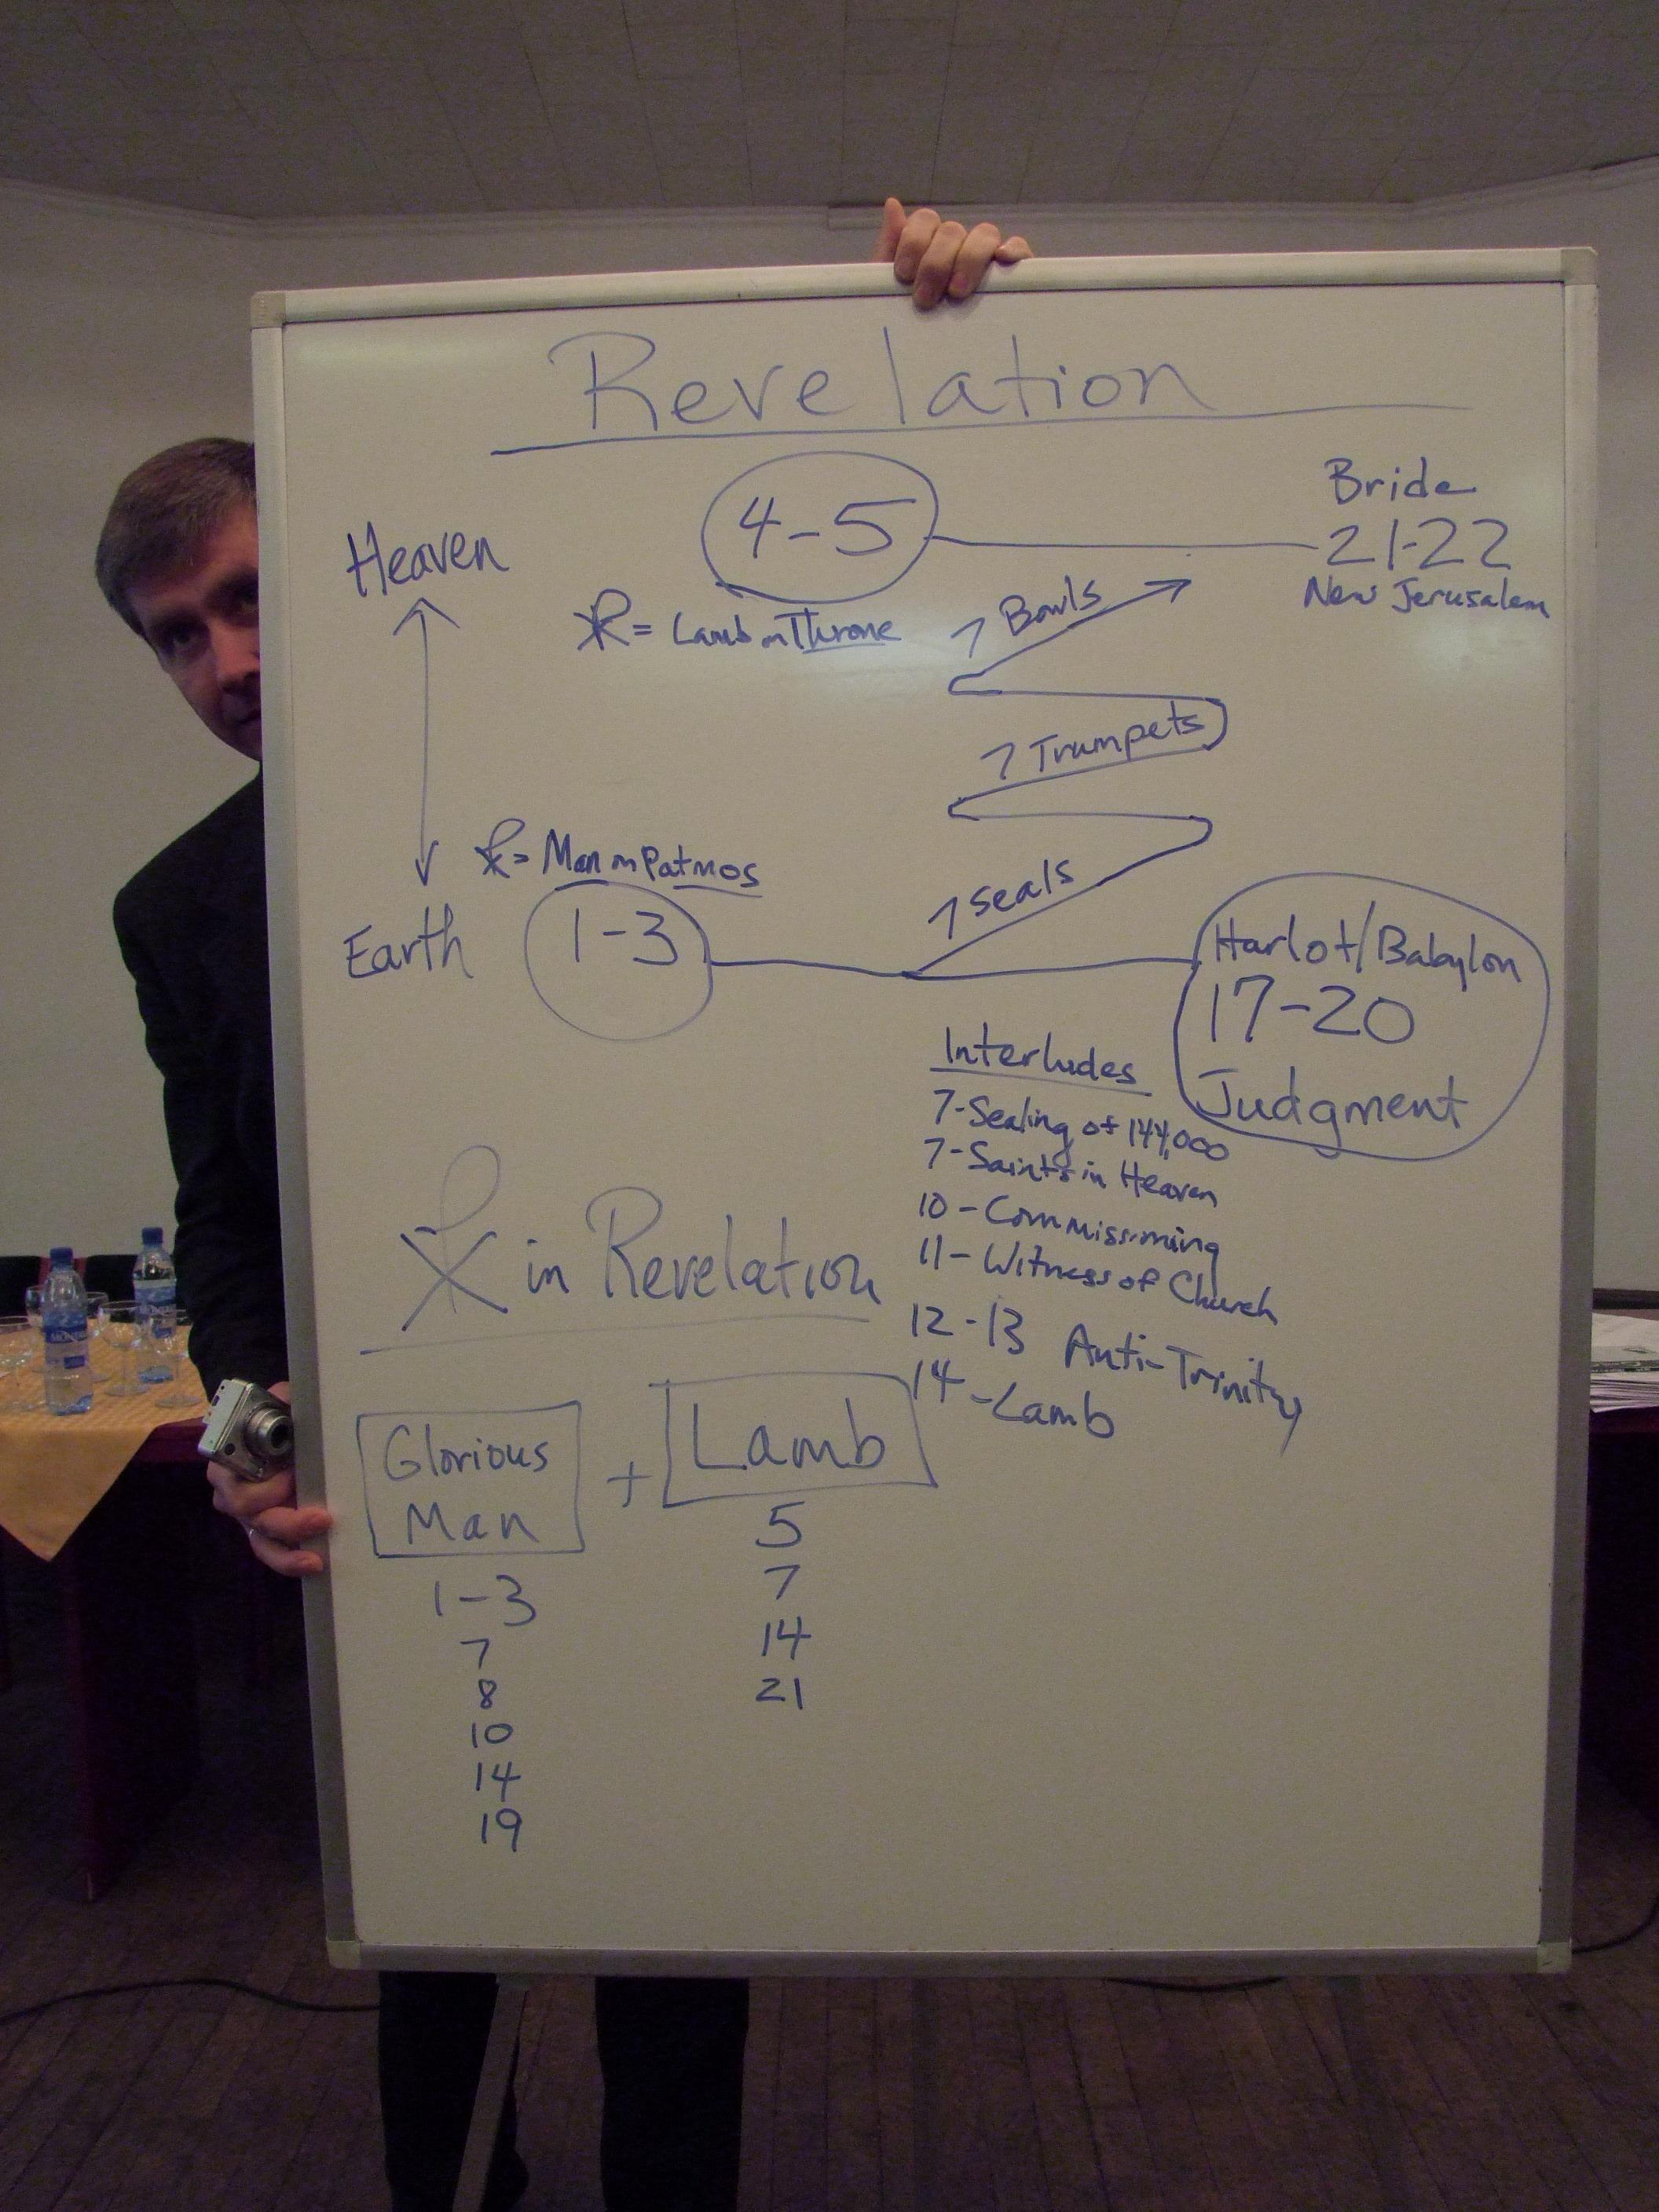 Revelation
Heaven
4-5
Bride
21-22
New Jerusalem
☧ = Lamb on Throne
7 Bowls
7 Trumpets
7 seals
☧ = Man on Patmos
Earth
1-3
Harlot/Babylon
17-20
Judgment
Interludes
7-Sealing of 144,000
7-Saints in Heaven
10-Commissioning
11-Witness of Church
12-13 Anti-Trinity
14-Lamb
☧ in Revelation
Glorious
Man
+
Lamb
1-3
7
8
10
14
19
5
7
14
21